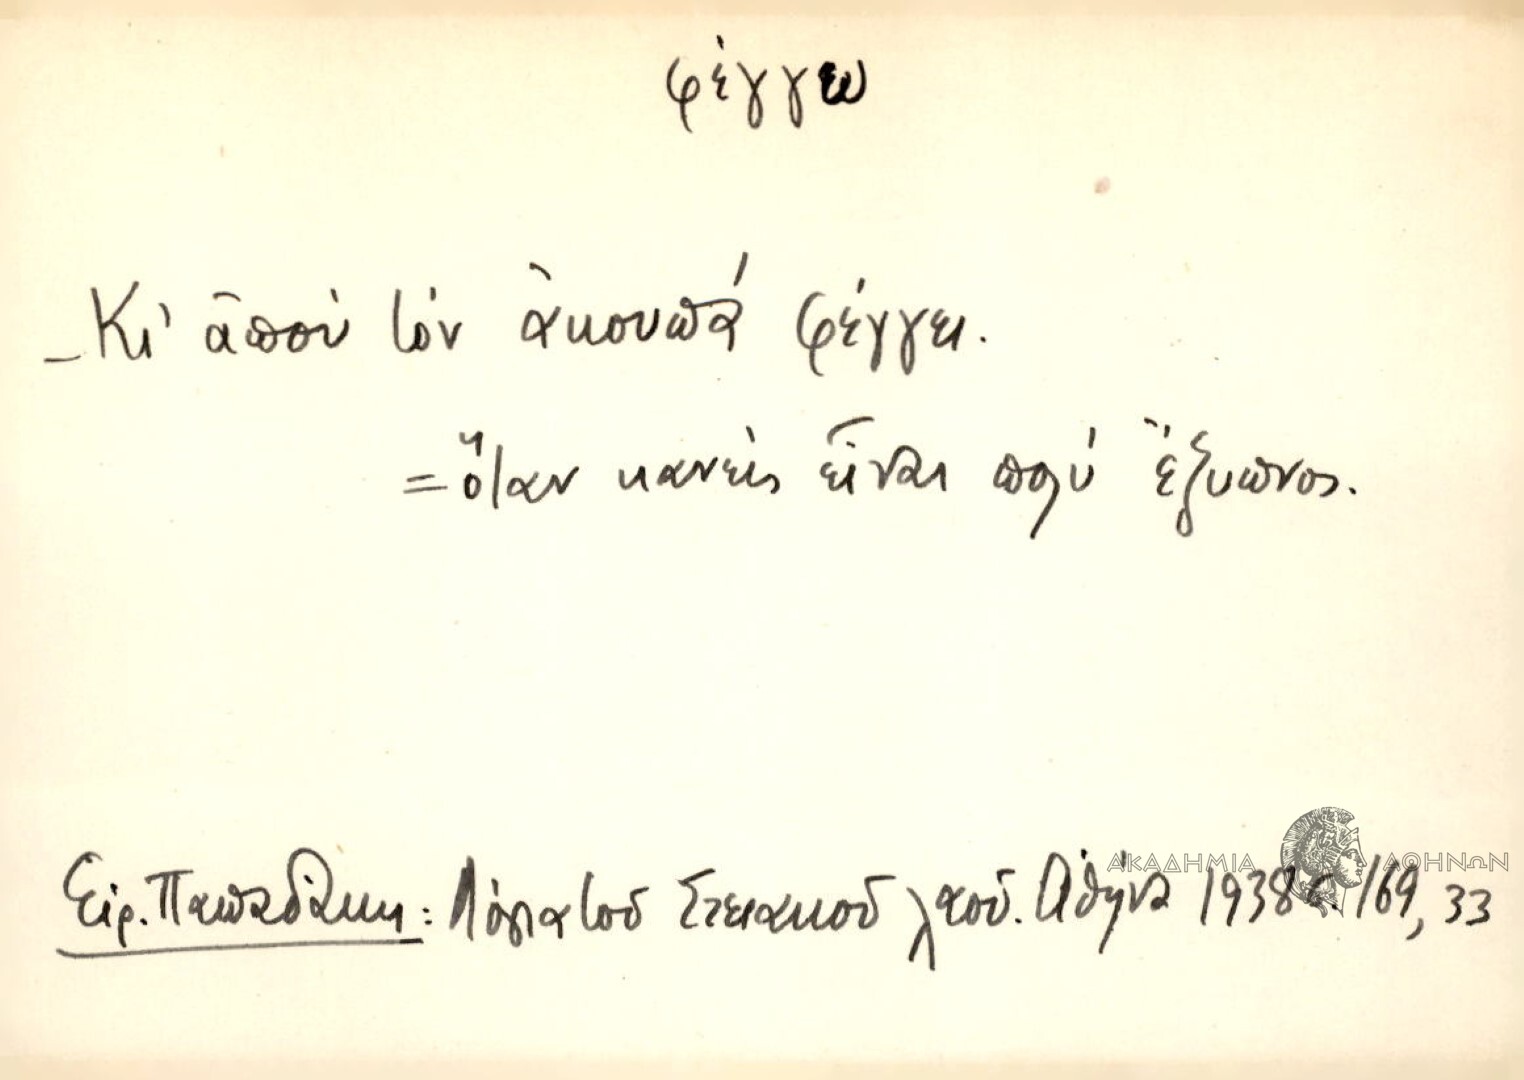 φέγγω
– Κι' ἀποὺ τὸν ἀκουπᾷ φέγγει.
= ὅταν κανεὶς εἶναι πολὺ ἔξυπνος.
Εἰρ. Παπαδάκη: Λόγια τοῦ Στειακοῦ λαοῦ. Ἀθήνα 1938 σ. 169, 33
ΑΚΑΔΗΜΙΑ ΑΘΗΝΩΝ